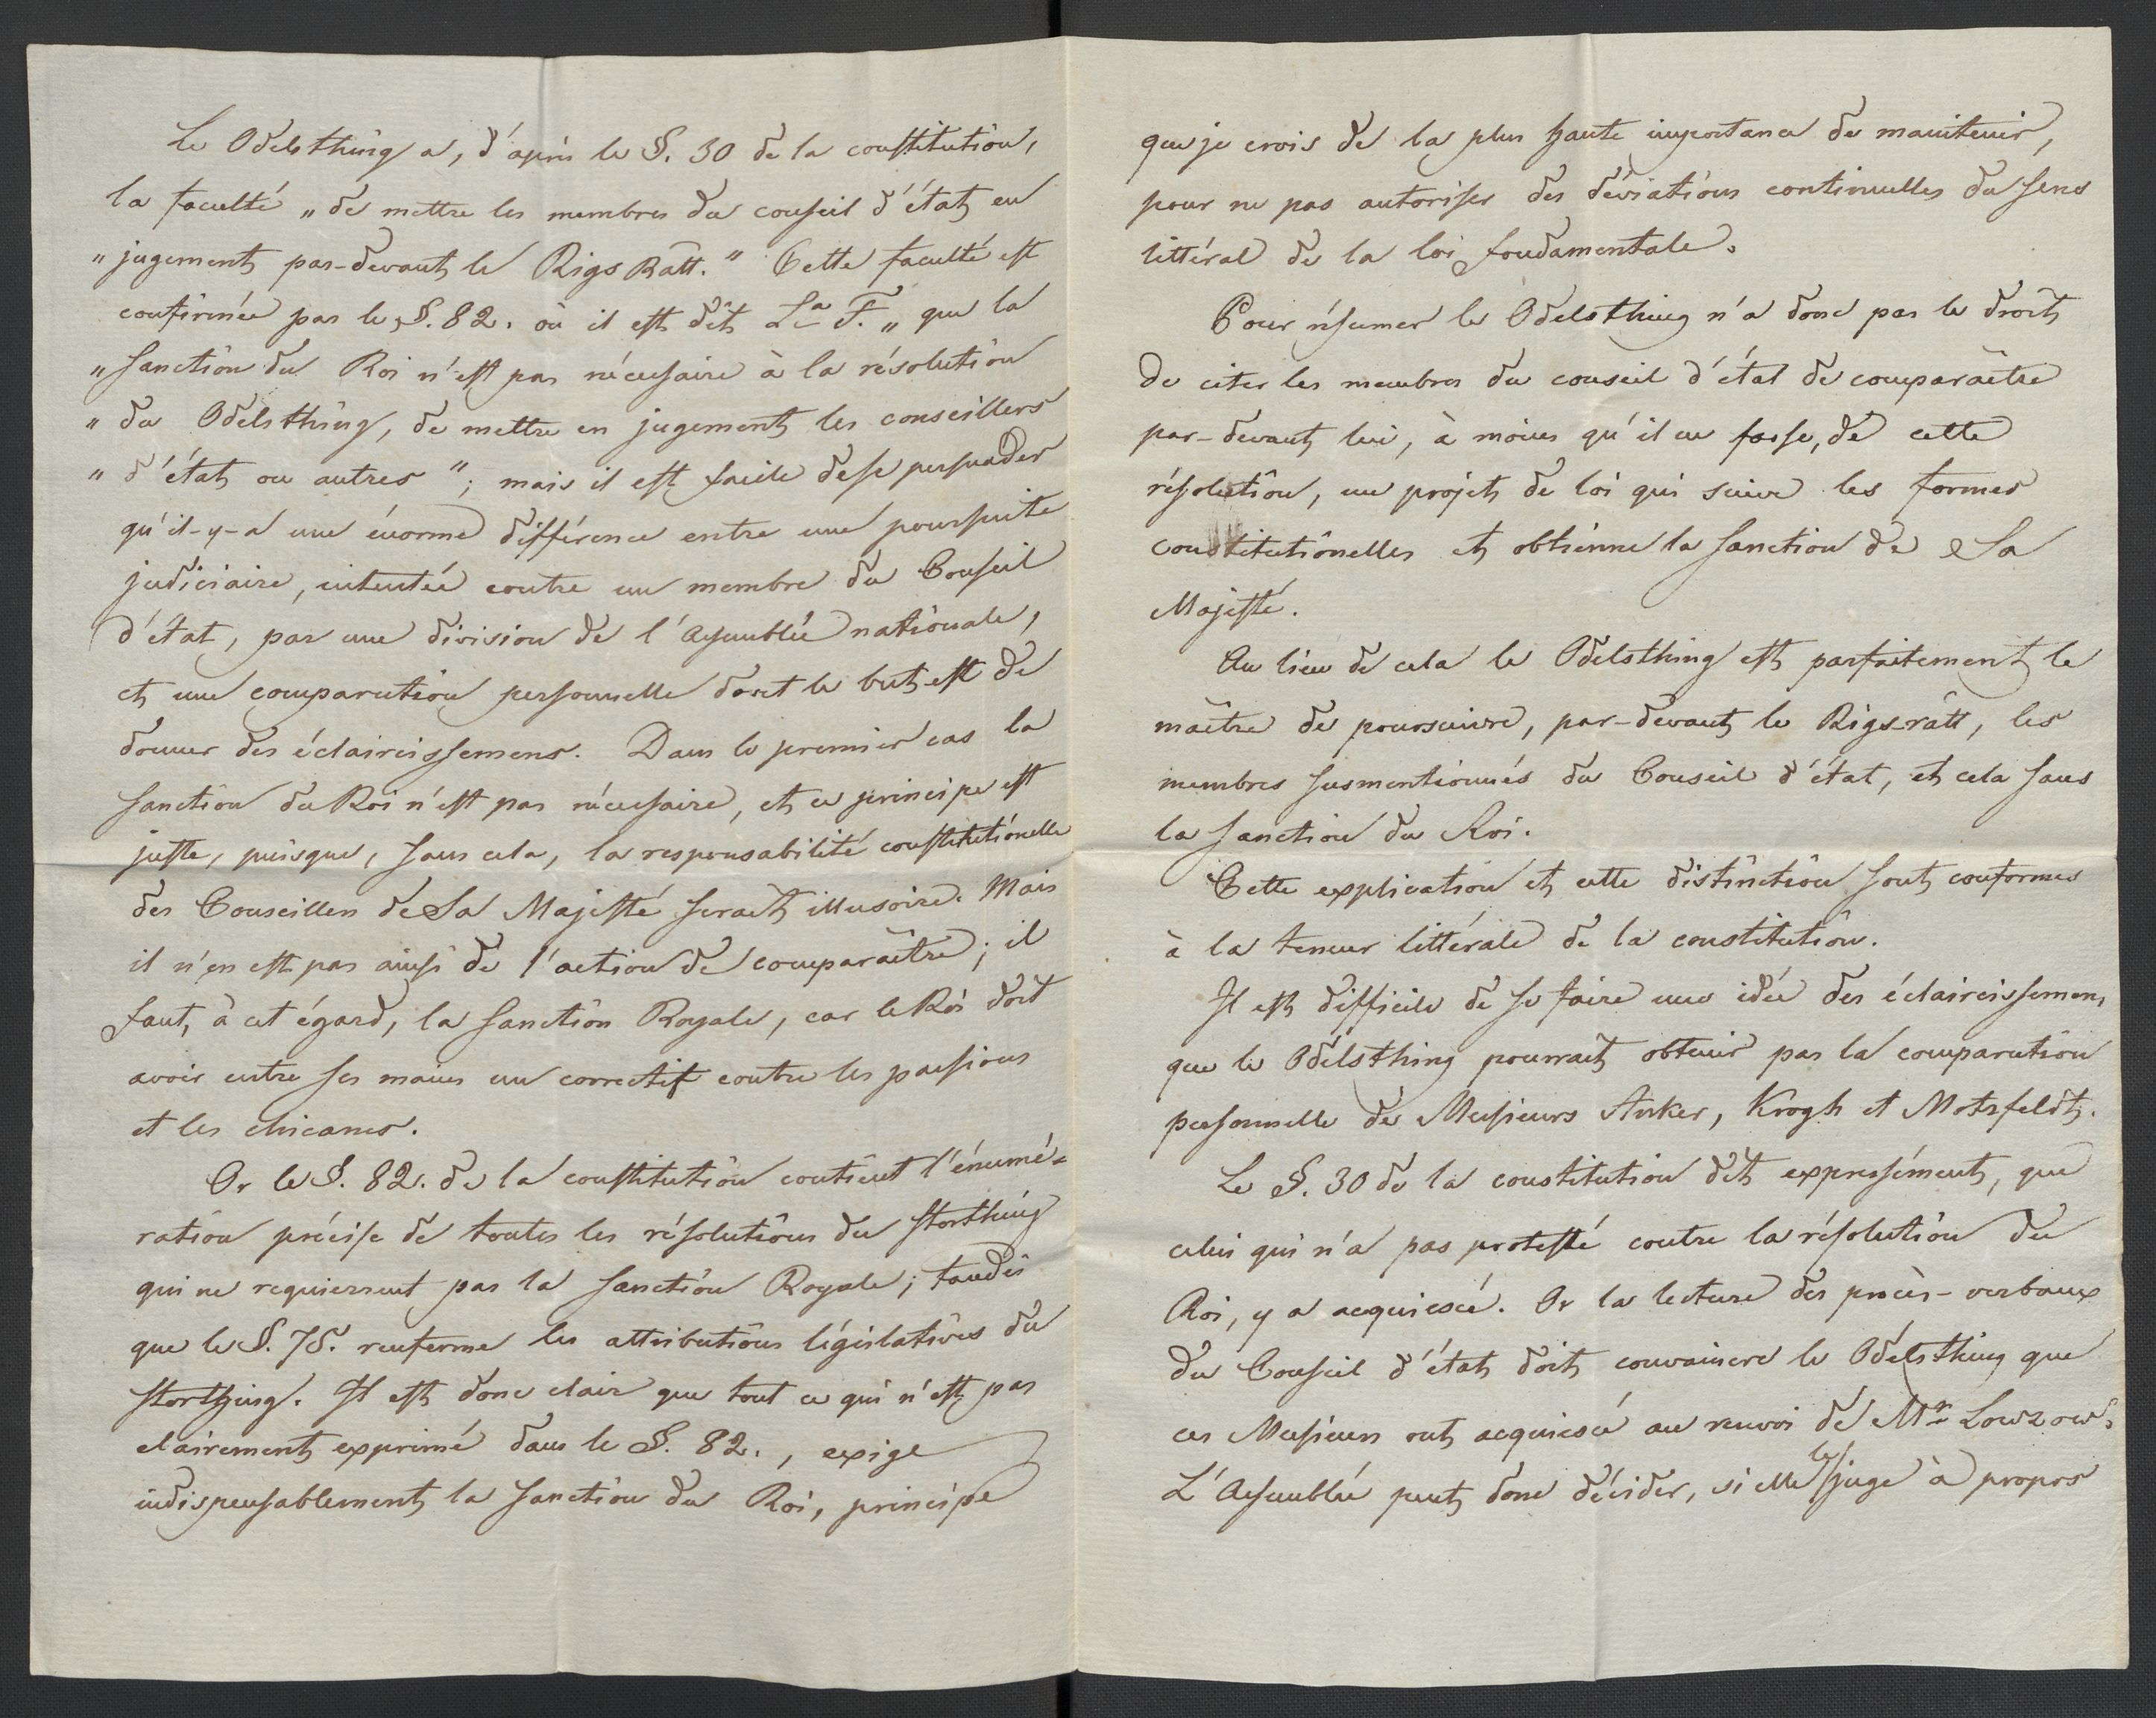 Le Odelsthing a, d'après le §. 30 de la constitution,
la faculté „de mettre les membres du conseil d'état en
„jugement par-devant le Rigs Rätt." Cette faculté est
confirmée par le §. 82. où il est dit La F. „que la
„sanction du Roi n'est pas nécessaire à la résolution
„du Odelsthing, de mettre en jugement les conseillers
„d'état ou autres"; mais il est facile de se persuader
qu'il-y-a une énorme différence entre une poursuite
judiciaire, intentée contre un membre du Conseil
d'état, par une division de l'Assemblée nationale,
et une comparution personnelle dont le but est de
donner des éclaircissemens. Dans le premier cas la
sanction du Roi n'est pas nécessaire, et ce principe est
juste, puisque, sans cela, la responsabilité constitutionelle
des Conseillers de Sa Majesté serait illusoire. Mais
il n'en est pas ainsi de l'action de comparaître; il
faut, à cet égard, la sanction Royale, car le Roi doit
avoir entre ses mains un correctif contre les passions
et les chicanes.
Or le §. 82. de la constitution contient l'énumé-
ration précise de toutes les résolutions du Storthing
qui ne requierrent pas la sanction Royale; tandis
que le §. 75. renferme les attributions législatives du
Storthing. Il est donc clair que tout ce qui n'est pas
clairement exprimé dans le §. 82., exige
indispensablement la sanction du Roi, principe
que je crois de la plus haute importance de maintenir,
pour ne pas autoriser des déviations continuelles du sens
littéral de la loi fondamentale.
Pour résumer le Odelsthing n'a donc pas le droit
de citer les membres du conseil d'état de comparaître
par-devant lui, à moins qu'il ne fasse, de cette
résolution, un projet de loi qui suive les formes
constitutionelles et obtienne la sanction de Sa
Majesté.
Au lieu de cela le Odelsthing est parfaitement le
maître de poursuivre, par-devant le Rigs-rätt, les
membres susmentionnés du Conseil d'état, et cela sans
la sanction du Roi.
Cette explication et cette distinction sont conformes
à la teneur littérale de la constitution.
Il est difficile de se faire une idée des éclaircissemens
que le Odelsthing pourrait obtenir par la comparution
personnelle de Messieurs Anker, Krogh et Motzfeldt.
Le §. 30 de la constitution dit expressément, que
celui qui n'a pas protesté contre la résolution du
Roi, y a acquiescé. Or la lecture des procès-verbaux
du Conseil d'état doit convaincre le Odelsthing que
ces Messieurs ont acquiescé au renvoi de Mr Lowzow.
L'Assemblée peut donc décider, si elle le juge à propos